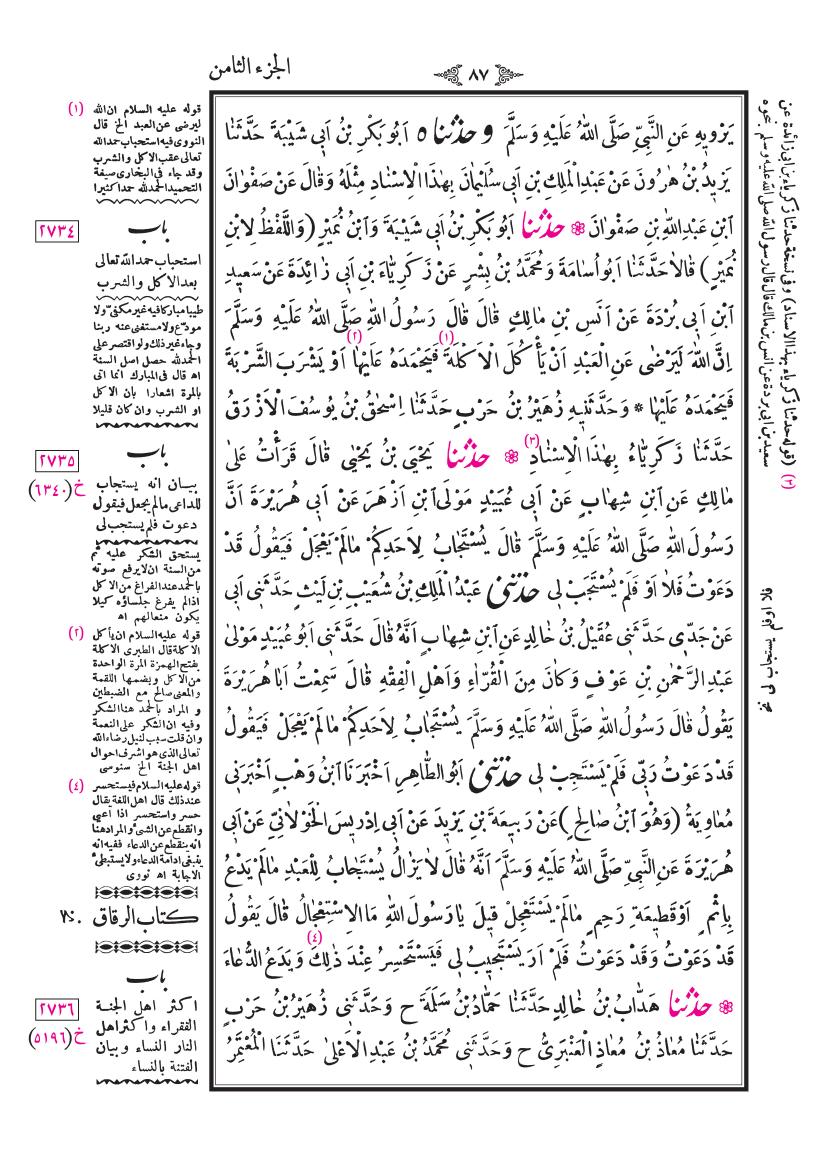 الجزء الثامن
٨٧
يَرْوِيهِ عَنِ النَّبِيِّ صَلَّى اللهُ عَلَيْهِ وَسَلَّمَ وحدثناه اَبُو بَكْرِ بْنُ اَبِى شَيْبَةَ حَدَّثَنَا
يَزِيدُ بْنُ هٰرُونَ عَنْ عَبْدِ الْمَلِكِ بْنِ اَبِى سُلَيْمَانَ بِهٰذَا الْاِسْنَادِ مِثْلَهُ وَقَالَ عَنْ صَفْوَانَ
ابْنِ عَبْدِ اللهِ بْنِ صَفْوَانَ ۞ حدثنا اَبُو بَكْرِ بْنُ اَبِى شَيْبَةَ وَابْنُ نُمَيْرٍ (وَاللَّفْظُ لِابْنِ
نُمَيْرٍ) قَالَا حَدَّثَنَا اَبُو اُسَامَةَ وَمُحَمَّدُ بْنُ بِشْرٍ عَنْ زَكَرِيَّاءَ بْنِ اَبِى زَائِدَةَ عَنْ سَعِيدِ
ابْنِ اَبِى بُرْدَةَ عَنْ اَنَسِ بْنِ مَالِكٍ قَالَ قَالَ رَسُولُ اللهِ صَلَّى اللهُ عَلَيْهِ وَسَلَّمَ
اِنَّ اللهَ لَيَرْضٰى عَنِ الْعَبْدِ اَنْ يَأْكُلَ الْاَكْلَةَ فَيَحْمَدَهُ عَلَيْهَا اَوْ يَشْرَبَ الشَّرْبَةَ
فَيَحْمَدَهُ عَلَيْهَا * وَحَدَّثَنِيهِ زُهَيْرُ بْنُ حَرْبٍ حَدَّثَنَا اِسْحٰقُ بْنُ يُوسُفَ الْاَزْرَقُ
حَدَّثَنَا زَكَرِيَّاءُ بِهٰذَا الْاِسْنَادِ (٣) ۞ حدثنا يَحْيَى بْنُ يَحْيٰى قَالَ قَرَأْتُ عَلٰى
مَالِكٍ عَنِ ابْنِ شِهَابٍ عَنْ اَبِى عُبَيْدٍ مَوْلَى ابْنِ اَزْهَرَ عَنْ اَبِى هُرَيْرَةَ اَنَّ
رَسُولَ اللهِ صَلَّى اللهُ عَلَيْهِ وَسَلَّمَ قَالَ يُسْتَجَابُ لِاَحَدِكُمْ مَا لَمْ يَعْجَلْ فَيَقُولُ قَدْ
دَعَوْتُ فَلَا اَوْ فَلَمْ يُسْتَجَبْ لِى حدثنى عَبْدُ الْمَلِكِ بْنُ شُعَيْبِ بْنِ لَيْثٍ حَدَّثَنِى اَبِى
عَنْ جَدِّى حَدَّثَنِى عُقَيْلُ بْنُ خَالِدٍ عَنِ ابْنِ شِهَابٍ اَنَّهُ قَالَ حَدَّثَنِى اَبُو عُبَيْدٍ مَوْلٰى
عَبْدِ الرَّحْمٰنِ بْنِ عَوْفٍ وَكَانَ مِنَ الْقُرَّاءِ وَاَهْلِ الْفِقْهِ قَالَ سَمِعْتُ اَبَا هُرَيْرَةَ
يَقُولُ قَالَ رَسُولُ اللهِ صَلَّى اللهُ عَلَيْهِ وَسَلَّمَ يُسْتَجَابُ لِاَحَدِكُمْ مَا لَمْ يَعْجَلْ فَيَقُولُ
قَدْ دَعَوْتُ رَبِّى فَلَمْ يَسْتَجِبْ لِى حدثنى اَبُو الطَّاهِرِ اَخْبَرَنَا ابْنُ وَهْبٍ اَخْبَرَنِى
مُعَاوِيَةُ (وَهُوَ ابْنُ صَالِحٍ) عَنْ رَبِيعَةَ بْنِ يَزِيدَ عَنْ اَبِى اِدْرِيسَ الْخَوْلَانِىِّ عَنْ اَبِى
هُرَيْرَةَ عَنِ النَّبِيِّ صَلَّى اللهُ عَلَيْهِ وَسَلَّمَ اَنَّهُ قَالَ لَا يَزَالُ يُسْتَجَابُ لِلْعَبْدِ مَا لَمْ يَدْعُ
بِاِثْمٍ اَوْ قَطِيعَةِ رَحِمٍ مَا لَمْ يَسْتَعْجِلْ قِيلَ يَا رَسُولَ اللهِ مَا الِاسْتِعْجَالُ قَالَ يَقُولُ
قَدْ دَعَوْتُ وَقَدْ دَعَوْتُ فَلَمْ اَرَ يَسْتَجِيبُ لِى فَيَسْتَحْسِرُ عِنْدَ ذٰلِكَ وَيَدَعُ الدُّعَاءَ
۞ حدثنا هَدَّابُ بْنُ خَالِدٍ حَدَّثَنَا حَمَّادُ بْنُ سَلَمَةَ ح وَحَدَّثَنِى زُهَيْرُ بْنُ حَرْبٍ
حَدَّثَنَا مُعَاذُ بْنُ مُعَاذٍ الْعَنْبَرِىُّ ح وَحَدَّثَنِى مُحَمَّدُ بْنُ عَبْدِ الْاَعْلٰى حَدَّثَنَا الْمُعْتَمِرُ
(١) قوله عليه السلام ان الله
ليرضى عن العبد الخ قال
النووى فيه استحباب حمدالله
تعالى عقب الاكل والشرب
وقد جاء فى البخارى صيغة
التحميد الحمدلله حمدا كثيرا
٢٧٣٤
باب
استحباب حمد الله تعالى
بعد الاكل والشرب
طيبا مباركا فيه غير مكفى ولا
مودع ولا مستغنى عنه ربنا
وجاء غير ذلك ولو اقتصر على
الحمدلله حصل اصل السنة
اه قال فى المبارك انما اتى
بالمرة اشعارا بان الاكل
او الشرب وان كان قليلا
٢٧٣٥
خ (٦٣٤٠)
باب
بيان انه يستجاب
للداعى مالم يعجل فيقول
دعوت فلم يستجب لى
يستحق الشكر عليه ثم
من السنة ان لا يرفع صوته
بالحمد عند الفراغ من الاكل
اذا لم يفرغ جلساؤه كيلا
يكون منعالهم اه
(٢) قوله عليه السلام ان يأكل
الاكلة قال الطبرى الاكلة
بفتح الهمزة المرة الواحدة
من الاكل وبضمها اللقمة
والمعنى صالح مع الضبطين
و المراد بالحمد هنا الشكر
وفيه ان الشكر على النعمة
وان قلت سبب لنيل رضاء الله
تعالى الذى هو اشرف احوال
اهل الجنة الخ سنوسى
(٤) قوله عليه السلام فيستحسر
عند ذلك قال اهل اللغة يقال
حسر واستحسر اذا اعيى
وانقطع عن الشئ والمراد هنا
انه ينقطع عن الدعاء ففيه انه
ينبغى ادامة الدعاء ولا يستبطئ
الاجابة اه نووى
كتاب الرقاق
باب
٢٧٣٦
خ (٥١٩٦)
اكثر اهل الجنة
الفقراء واكثر اهل
النار النساء وبيان
الفتنة بالنساء
(٣) (قوله حدثنا زكرياء بهذا الاسناد) وفى نسخة حدثنا زكرياء بن ابى زائدة عن
سعيد بن ابى بردة عن انس بن مالك قال قال رسول الله صلى الله عليه وسلم بنحوه